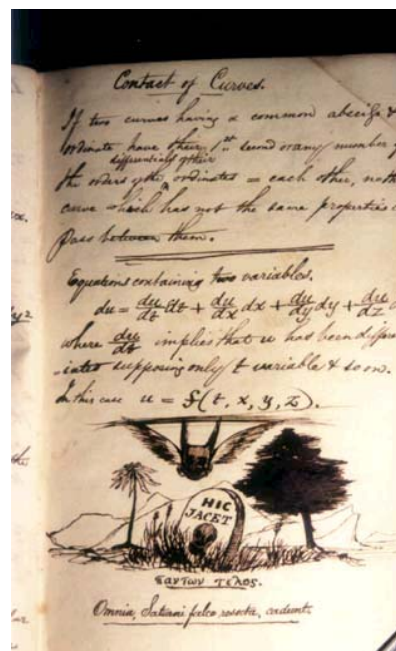 Contact of Curves.
If two curves having a common abscifs &
ordinate have their 1st second or any number
differentials of their
the orders of the ordinates = each other, no
curve which has not the same properties
pass between them.
Equations containing two variables.
du = du/dt dt + du/dx dx + du/dy dy + du/dz
where du/dt implies that u has been differen
-iated supposing only t variable & so on.
In this case u = F(t, x, y, z).
HIC
JACET
παντων τελος.
Omnia, Saturni falce resecta, cadunt.